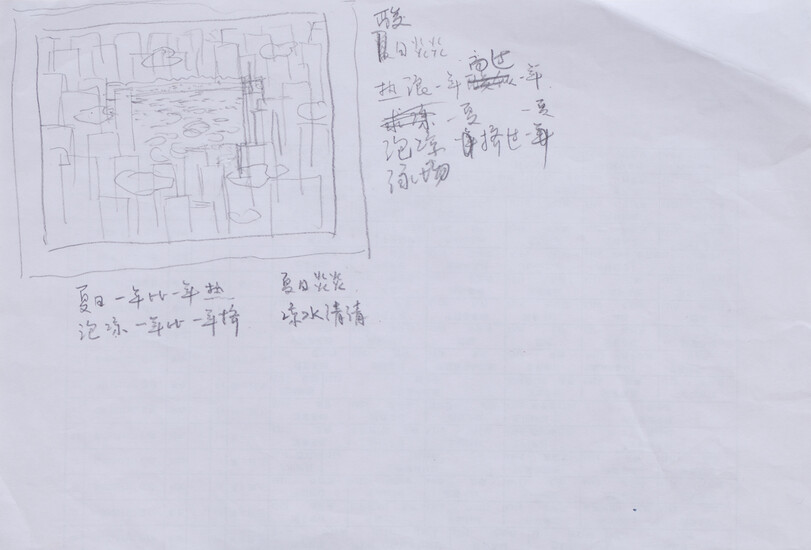 酸
夏日炎炎
热浪一年高过一年
泡凉一夏挤过一夏
泳场
夏日一年比一年热
泡凉一年比一年挤
夏日炎炎
凉水清清